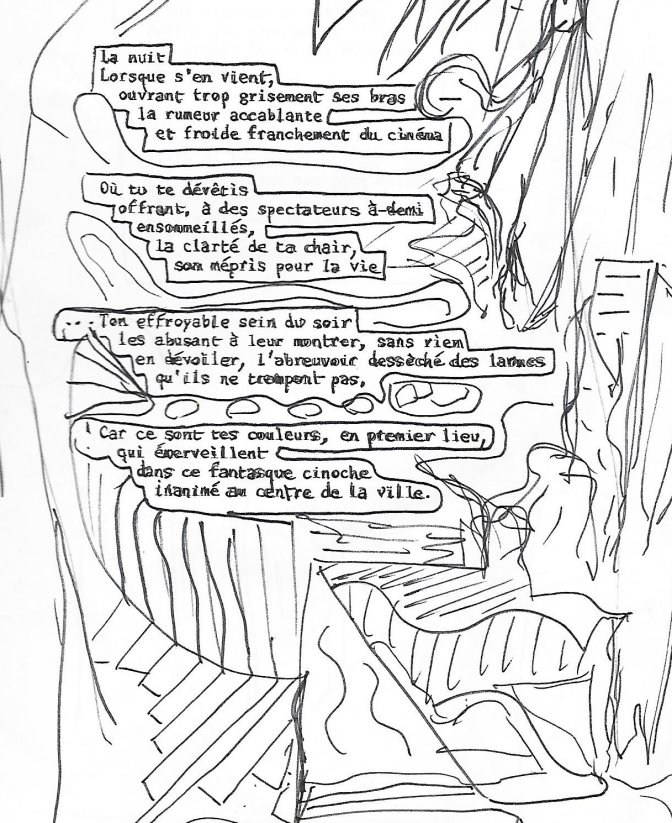 La nuit
Lorsque s'en vient,
ouvrant trop grisement ses bras
la rumeur accablante
et froide franchement du cinéma
Où tu te dévêtis
offrant, à des spectateurs à-demi
ensommeillés,
la clarté de ta chair,
son mépris pour la vie
...Ton effroyable sein du soir
les abusant à leur montrer, sans rien
en dévoiler, l'abreuvoir dessèché des larmes
qu'ils ne trompent pas,
Car ce sont tes couleurs, en premier lieu,
qui émerveillent
dans ce fantasque cinoche
inanimé au centre de la ville.